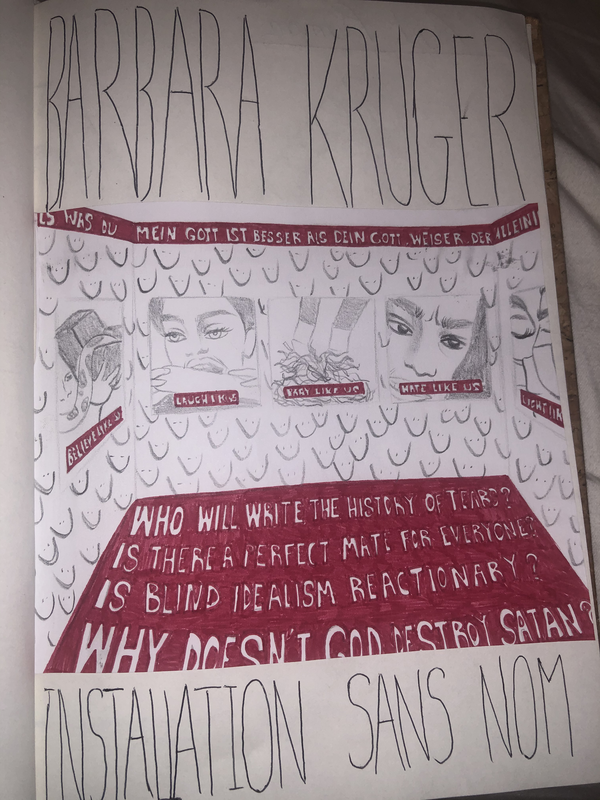 BARBARA KRUGER
LS WAS DU MEIN GOTT IST BESSER ALS DEIN GOTT. WEISER. DER ALLEINI
BELIEVE LIKE US
LAUGH LIKE US
LIKE US
HATE LIKE US
WHO WILL WRITE THE HISTORY OF TEARS?
IS THERE A PERFECT MATE FOR EVERYONE?
IS BLIND IDEALISM REACTIONARY?
WHY DOESN'T GOD DESTROY SATAN?
INSTALLATION SANS NOM